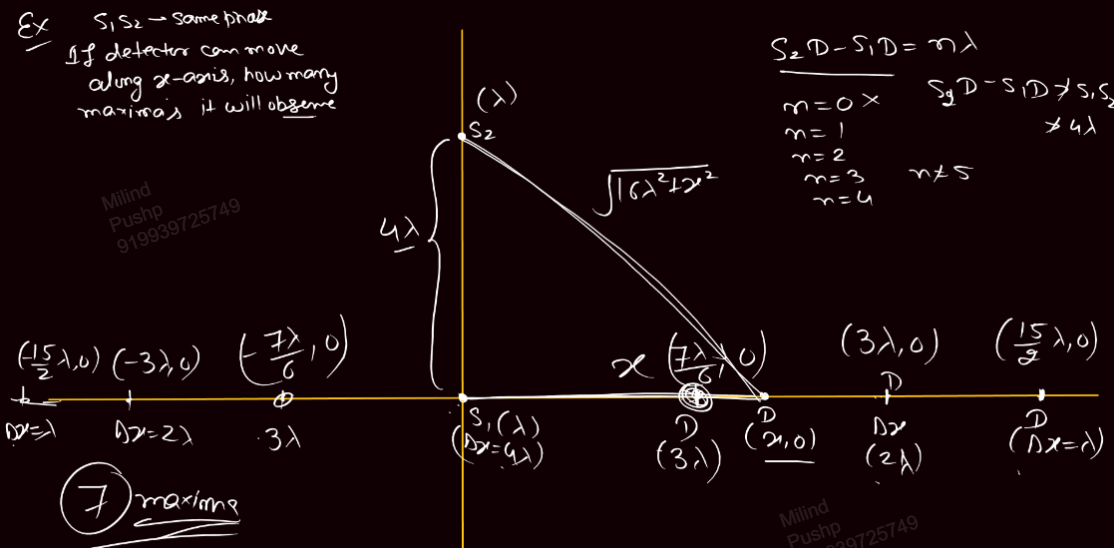 Ex S₁S₂ → Same phase
If detector can move
along x-axis, how many
maxima's it will observe
S₂D - S₁D = nλ
n = 0 ×
n = 1
n = 2
n = 3
n = 4
S₂D - S₁D ≯ S₁S₂
≯ 4λ
n ≠ 5
(λ)
S₂
√16λ²+x²
4λ
Milind
Pushp
919939725749
(-15/2 λ,0) (-3λ,0) (-7λ/6, 0) x (7λ/6, 0) (3λ,0) (15/2 λ,0)
D
Δx=λ Δx=2λ 3λ
S₁(λ)
(Δx=4λ)
D
(3λ)
D
(x,0)
Δx
(2λ)
D
(Δx=λ)
7 maxima
Milind
Pushp
939725749